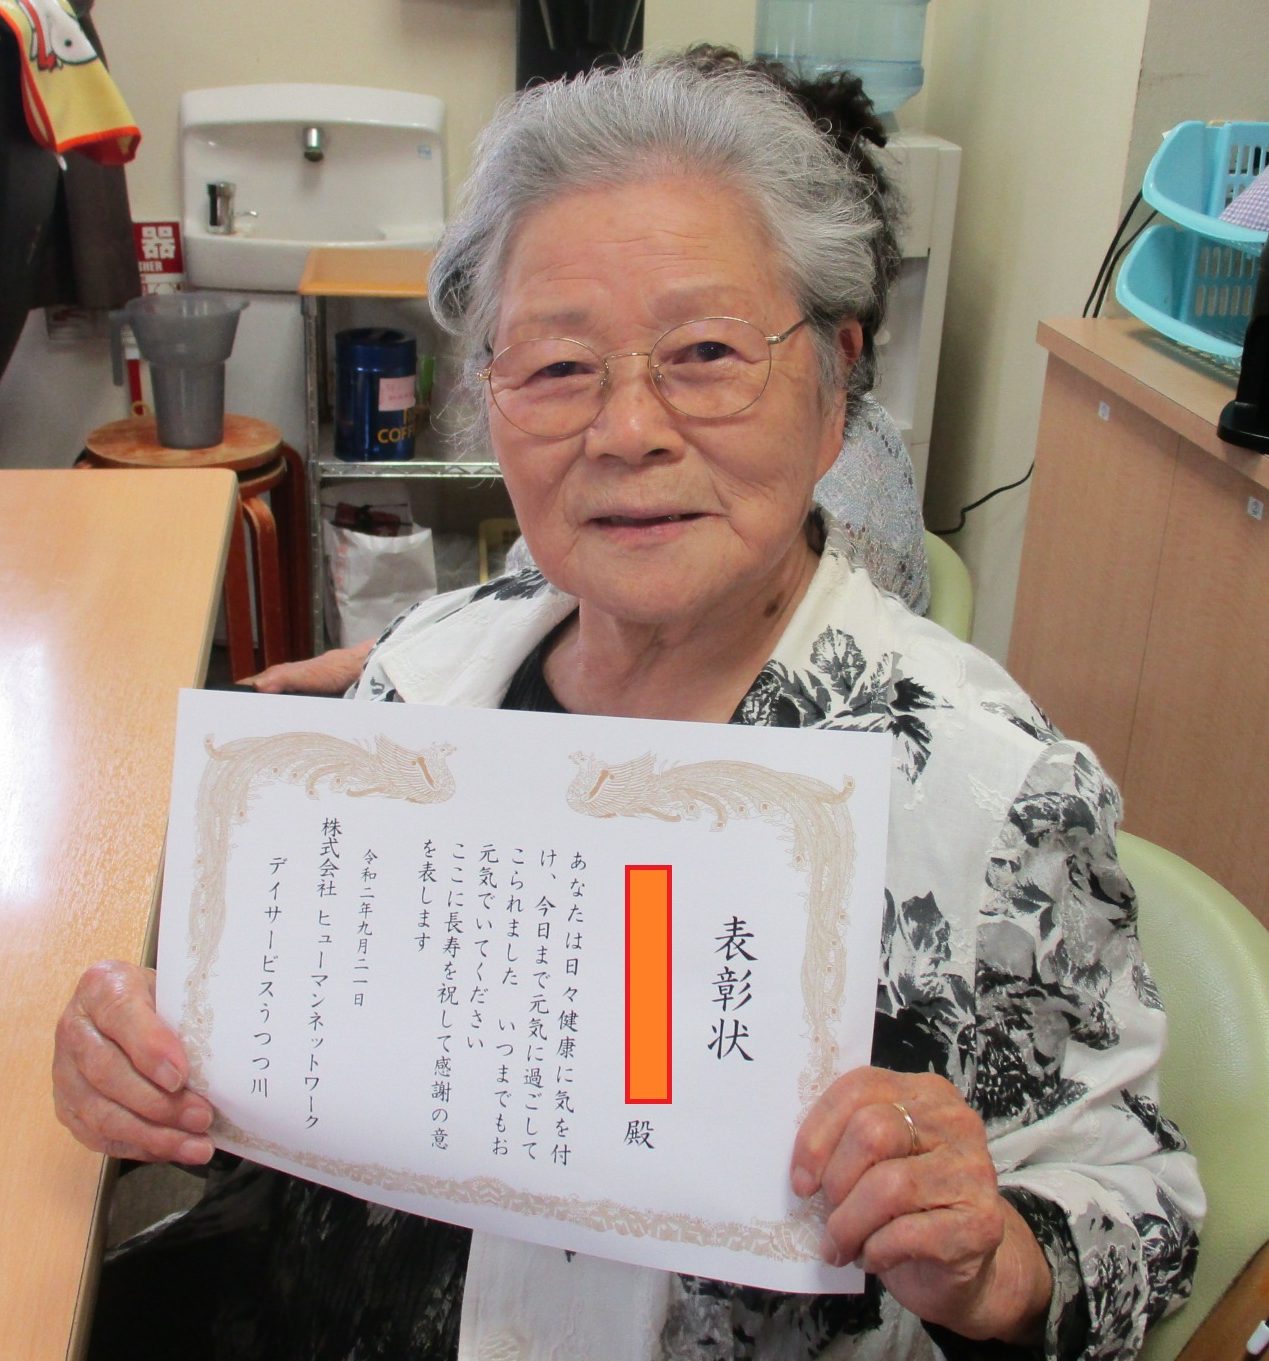 表彰状
殿
あなたは日々健康に気を付
け、今日まで元気に過ごして
こられました いつまでもお
元気でいてください
ここに長寿を祝して感謝の意
を表します
令和二年九月二一日
株式会社 ヒューマンネットワーク
デイサービスうつつ川
器
SHER
COFF
②